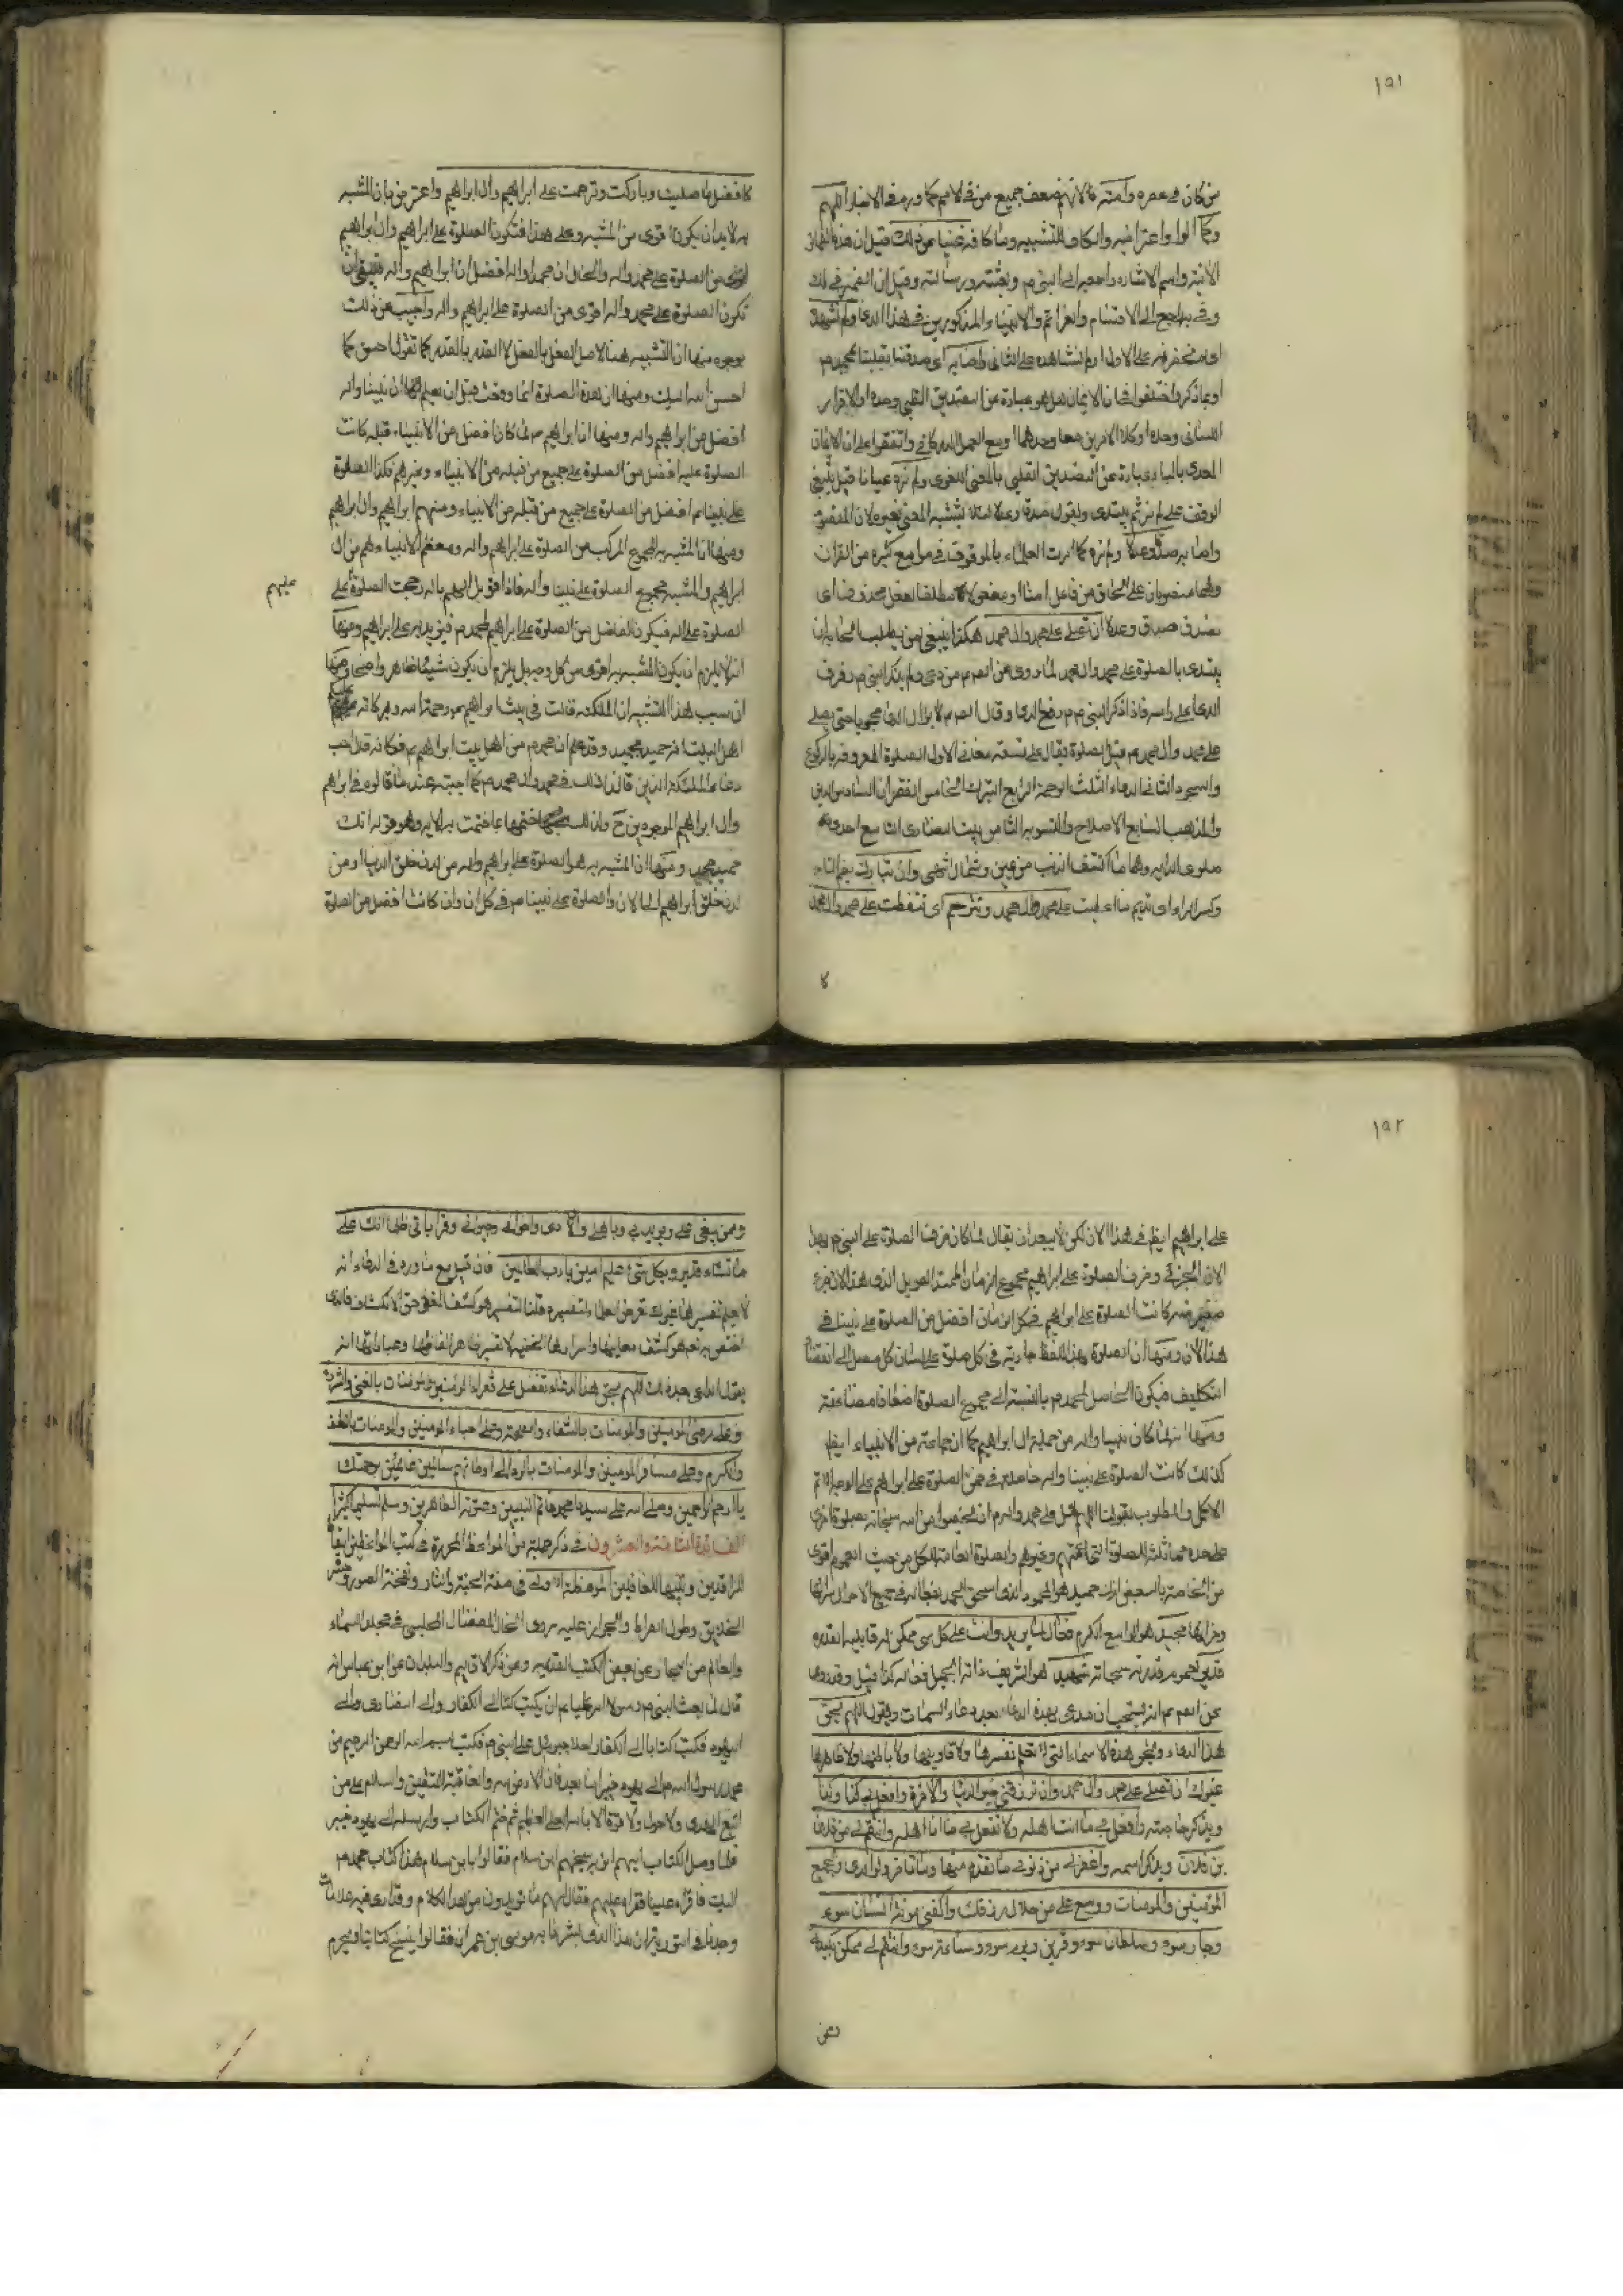 ١٥١
من كان في عصره وامته فالانهم ضعف جميع من في الامم كما ورد في الاخبار اللهم
وكما الواو اعتراضية والكاف للتشبيه وما كافة غبنا عن ذلك قيل ان هذه الضمائر
الاتية واسم الاشارة راجعة الى النبي م وبعثته ورسالته وقيل ان الضمير في ذلك
وفي به راجع الى الاقسام والعزائم والانبياء والمذكورين في هذا الدعاء ولم نشهده
اي لم نحضره على الاول ولم نشاهده على الثاني وامنا به اي صدقنا بقلبنا بمحمد م
او بما ذكر واختلفوا في ان الايمان هل هو عبارة عن التصديق القلبي وحده او الاقرار
اللساني وحده او كلا الامرين معا وحدهما او مع العمل الاركاني واتفقوا على ان الايمان
المعدى بالباء عبارة عن التصديق القلبي بالمعنى اللغوي ولم نره عيانا قيل ينبغي
الوقف على لم نره ثم يبتدى ويقول صدقا وعدلا لئلا يشتبه المعنى بغيره لان المقصود
وامنا به صدقا وعدلا ولم نره كما امرت العلماء بالوقوف في مواضع كثيرة من القران
وهما منصوبان على الحال من فاعل امنا او مفعولا مطلقا لفعل محذوف اي
نصدق صدقا وعدلا ان تصلي على محمد وال محمد هكذا ينبغي لمن يطلب الحاجة ان
يبتدى بالصلوة على محمد وال محمد لما روى عن الص م من دعى ولم يذكر النبي م رفرف
الدعاء على راسه فاذا ذكر النبي م رفع الدعاء وقال الص م لا يزال الدعاء محجوبا حتى يصلى
على محمد وال محمد م قيل الصلوة تقال على تسعة معان الاول الصلوة المعروفة بالركوع
والسجود الثاني الدعاء الثالث الرحمة الرابع التبرك الخامس الغفران السادس الدين
والمذهب السابع الاصلاح والتسوية الثامن بيت النصارى التاسع احدى
صلوى الدابة وهما ما اكتنف الذنب من يمين وشمال انتهى وان تبارك بضم التاء
وكسر الراء اي تديم ما اعطيت على محمد وال محمد وتترحم اي تتعطف على محمد وال محمد
كا
كافضل ما صليت وباركت وترحمت على ابراهيم وال ابراهيم واعترض بان المشبه
به لا بد ان يكون اقوى من المشبه وعلى هذا فتكون الصلوة على ابراهيم وال ابراهيم
اقوى من الصلوة على محمد واله والحال ان محمدا واله افضل من ابراهيم واله فينبغي ان
تكون الصلوة على محمد واله اقوى من الصلوة على ابراهيم واله واجيب عن ذلك
بوجوه منها ان التشبيه هنا لاصل الفعل بالفعل لا القدر بالقدر كما تقول احسن كما
احسن الله اليك ومنها ان هذه الصلوة انما وقعت قبل ان يعلم الله ان نبينا واله
افضل من ابراهيم واله ومنها ان ابراهيم م لما كان افضل من الانبياء قبله كانت
الصلوة عليه افضل من الصلوة على جميع من قبله من الانبياء وغيرهم فكذا الصلوة
على نبينا م افضل من الصلوة على جميع من قبله من الانبياء ومنهم ابراهيم وال ابراهيم
ومنها ان المشبه به المجموع المركب من الصلوة على ابراهيم واله ومعظم الانبياء هم من ال
ابراهيم والمشبه مجموع الصلوة على نبينا واله فاذا قوبل الهم بالهم رجحت الصلوة على
عليهم
الصلوة على اله فيكون الفاضل من الصلوة على ابراهيم لمحمد م فيزيد به على ابراهيم ومنها
انه لا يلزم ان يكون المشبه به اقوى من كل وجه بل يلزم ان يكون شيئا ظاهرا واضحا ومنها
ان سبب هذا التشبيه ان الملئكة قالت في بيت ابراهيم م رحمة الله وبركاته عليكم
اهل البيت انه حميد مجيد وقد علم ان محمد م من اهل بيت ابراهيم م فكانه قال اجب
دعاء الملئكة الذين قالوا ذلك في محمد وال محمد م كما اجبته عند ما قالوه في ابراهيم
وال ابراهيم الموجودين ح ولذلك ختمها بما ختمت به الاية وهو قوله انك
حميد مجيد ومنها ان المشبه به هو الصلوة على ابراهيم واله من لدن خلق الدنيا او من
لدن خلق ابراهيم الى الان والصلوة على نبينا م في كل ان وان كانت افضل من الصلوة
١٥٢
على ابراهيم ايض في هذا الان لكن لا يبعد ان يقال لما كان ظرف الصلوة على النبي م هو هذا
الان الجزئي وظرف الصلوة على ابراهيم مجموع الزمان الممتد الطويل الذي هذا الان جزء
صغير منه كانت الصلوة على ابراهيم في كل الزمان افضل من الصلوة على نبينا في
هذا الان ومنها ان الصلوة بهذا اللفظ جارية في كل صلوة على لسان كل مصل الى انقضاء
التكليف فيكون الحاصل لمحمد م بالنسبة الى مجموع الصلوة اضعافا مضاعفة
ومنها انه لما كان نبينا واله من جملة ال ابراهيم كما ان جماعة من الانبياء ايض
كذلك كانت الصلوة على نبينا واله حاصلة في ضمن الصلوة على ابراهيم على الوجه الاتم
الاكمل والمطلوب بقولنا اللهم صل على محمد واله م ان يخصوا من الله سبحانه بصلوة اخرى
على حدة مماثلة للصلوة التي عمتهم وغيرهم والصلوة العامة للكل من حيث العموم اقوى
من الخاصة بالبعض انك حميد هو المحمود الذي استحق الحمد بفعاله في جميع الاحوال سرائها
وضرائها مجيد هو الواسع الكرم فعال لما يريد وانت على كل شي ممكن له قابلية القدرة
قدير لعموم قدرته سبحانه شهيد هو الشريف ذاته الجميل فعاله كذا قيل وقد روى
عن الص م انه يستحب ان يدعى بهذه الدعاء بعد دعاء السمات ويقول اللهم بحق
هذا الدعاء وبحق هذه الاسماء التي لا يعلم تفسيرها ولا تاويلها ولا باطنها ولا ظاهرها
غيرك ان تصلي على محمد وال محمد وان ترزقني خير الدنيا والاخرة وافعل بي كذا وكذا
ويذكر حاجته وافعل بي ما انت اهله ولا تفعل بي ما انا اهله وانتقم لي من فلان
بن فلان ويذكر اسمه واغفر لي من ذنوبي ما تقدم منها وما تاخر ولوالدي ولجميع
المؤمنين والمومنات ووسع علي من حلال رزقك واكفني مونة انسان سوء
وجار سوء وسلطان سوء وقرين سوء ويوم سوء وساعة سوء وانتقم لي ممن يكيدني
ومن
وممن يبغي علي ويريد بي وباهلي واولادي واخواني وجيراني وقراباتي ظلما انك على
ما تشاء قدير وبكل شئ عليم امين يا رب العالمين فان قيل مع ما ورد في الدعاء انه
لا يعلم تفسيرها غيرك تعرض العلماء لتفسيره قلنا التفسير هو كشف المغطى حق الانكشاف فالذي
اختص به تع هو كشف معانيها واسرارها الخفية لا تفسير ظاهر الفاظها وعباراتها ثم
يقول الداعي بعد ذلك اللهم بحق هذا الدعاء تفضل على فقراء المومنين والمومنات بالغنى والثروة
وعلى مرضى المومنين والمومنات بالشفاء والصحة وعلى احياء المومنين والمومنات باللطف
والكرم وعلى مسافري المومنين والمومنات بالرد الى اوطانهم سالمين غانمين برحمتك
يا ارحم الراحمين وصلى الله على سيدنا محمد خاتم النبيين وعترته الطاهرين وسلم تسليما كثيرا
الفائدة الثامنة والعشرون في ذكر جملة من المواعظ المحررة في كتب الواعظين ايقاظا
للراقدين وتنبيها للغافلين الموعظة الاولى في صفة الجنة والنار ونفخة الصور وحشر
الخلايق وطول الصراط والجواز عليه روى الخال المفضال المجلسي في مجلد السماء
والعالم من البحار عن بعض الكتب القديمة ومن ذكر الاقاليم والبلدان عن ابن عباس انه
قال لما بعث النبي م رسولا امر عليا م ان يكتب كتابا الى الكفار والى النصارى والى
اليهود فكتب كتابا الى الكفار املاه جبرئيل على النبي م فكتب بسم الله الرحمن الرحيم من
محمد رسول الله م الى يهود خيبر اما بعد فان الارض لله والعاقبة للمتقين والسلام على من
اتبع الهدى ولا حول ولا قوة الا بالله العلي العظيم ثم ختم الكتاب وارسله الى يهود خيبر
فلما وصل الكتاب اليهم اتوا شيخهم ابن سلام فقالوا يا بن سلام هذا كتاب محمد م
اليك فاقرأه علينا فقراه عليهم فقال لهم ما تريدون من هذا الكلام وقد ارى فيه علامات
وجدناها في التورية ان هذا الذي بشر به موسى بن عمران فقالوا ينسخ كتابنا ويحرم